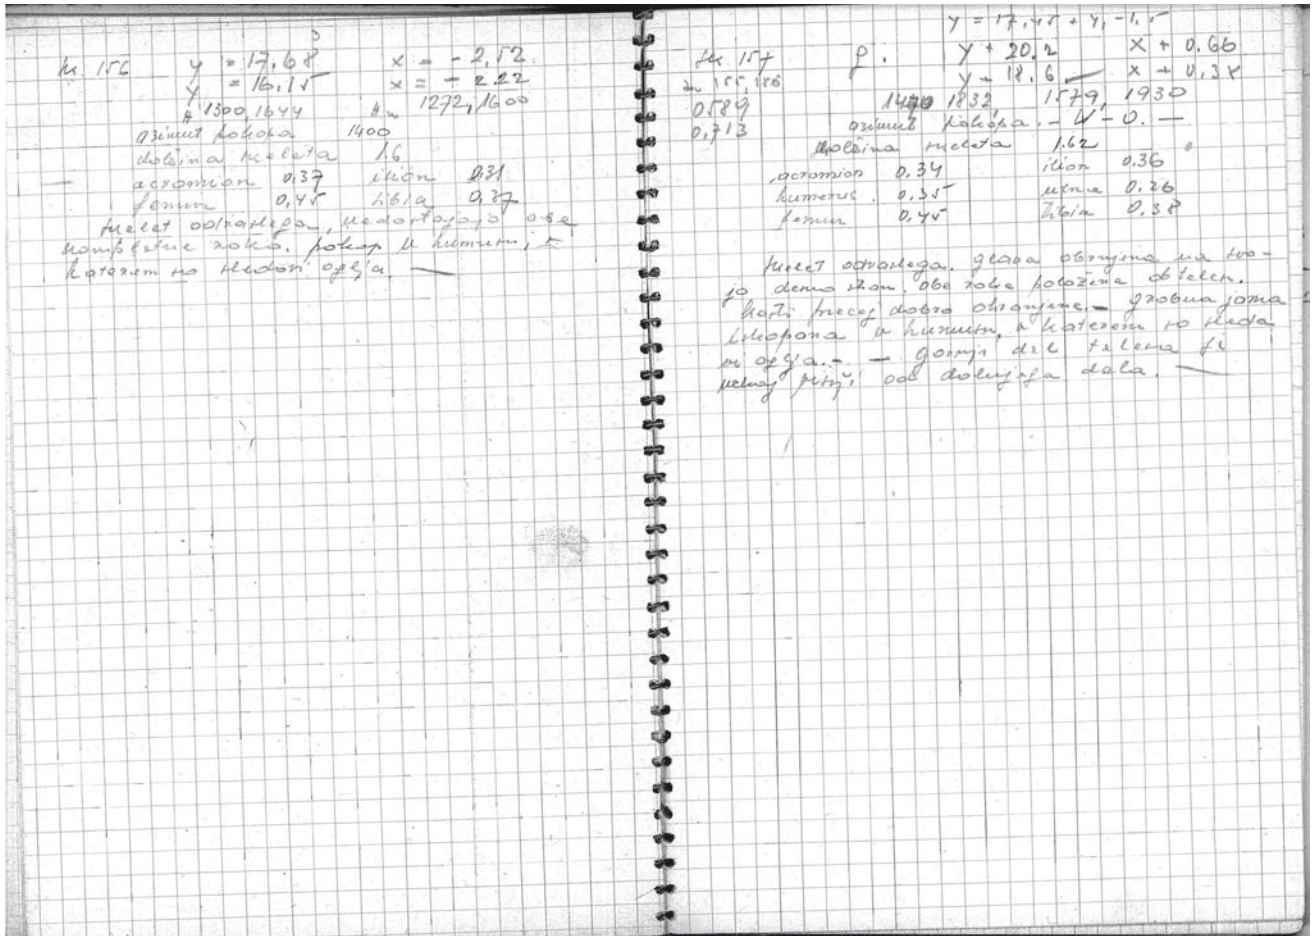 sk. 156 y = 17,68 x = - 2,52
y = 16,15 x = - 2.22
H 1300, 1644 H 1272, 1600
azimut pokopa 1400
dolžina skeleta 1.6
acromion 0,37 ilion 0,31
femur 0,45 tibia 0,37
skelet odraslega, nedostajajo obe
kompletne roke. pokop v humusu, v
katerem so sledovi oglja. —
y = 17,45 + 4,-1,5
sk. 157 y + 20,2 x + 0.66
155, 156 y + 18,6 x + 0,38
0589 1832, 1579, 1930
0,713 azimut pokopa. - W - O. —
dolžina skeleta 1.62
acromion 0.34 ilion 0.36
humerus. 0.35 ulna 0.26
femur 0.45 tibia 0.38
skelet odraslega. glava obrnjena na svo-
jo desno stran. obe roke položene ob telesu.
kosti precej dobro ohranjene. — grobna jama
iskopana v humusu, v katerem so sledo
vi oglja. - — gornji del telesa je
nekaj višji od dolnjega dela. —